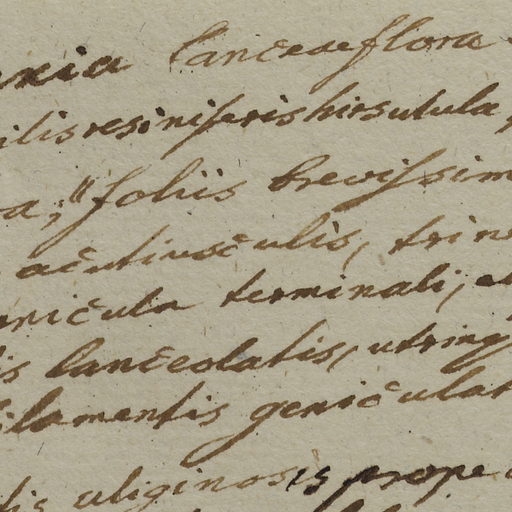 exia lanceaeflora
ilis resiniferis hirsutula,
a, foliis brevissim
acutiusculis, trine
anicula terminali,
is lanceolatis, utring
ilamentis geniculat
is uliginosis prope